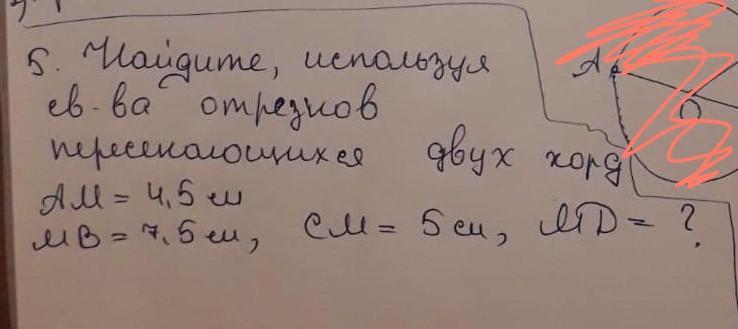 5. Найдите, используя
св-ва отрезков
пересекающихся двух хорд
АМ = 4,5 см
МВ = 7,5 см, СМ = 5 см, МD = ?
А